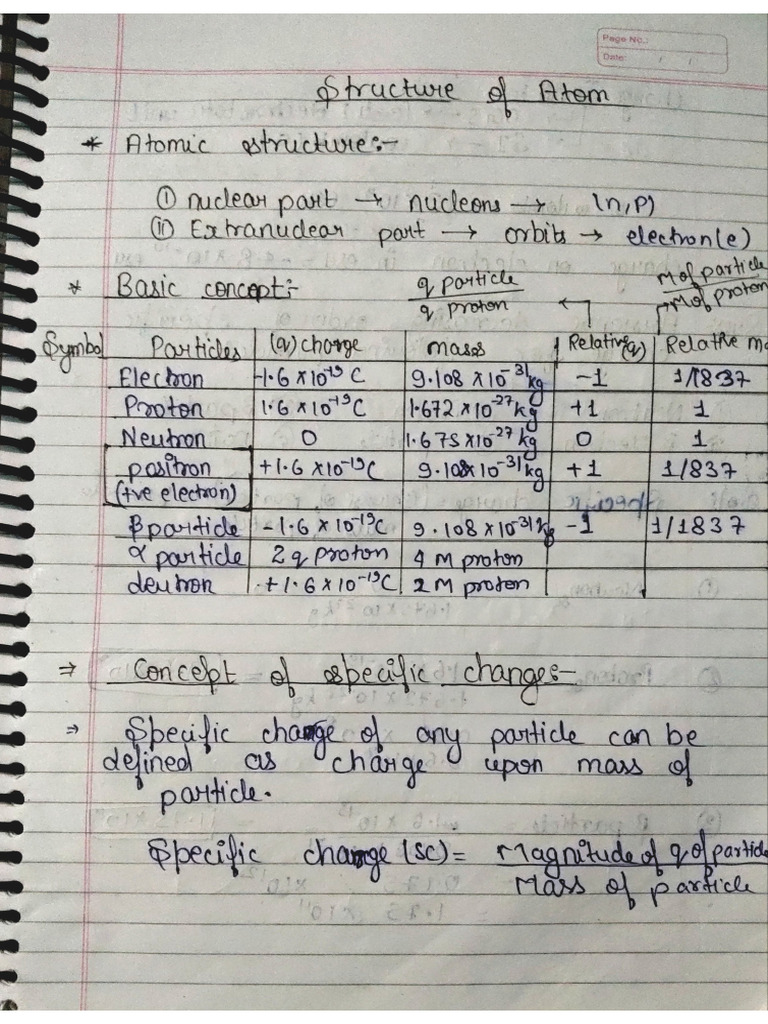 Page No.:
Date: / /
Structure of Atom
* Atomic structure:-
(i) nuclear part → nucleons → (n,p)
(ii) Extranuclear part → orbits → electron(e)
* Basic concept:- q particle / q proton ← M of particle / M of proton
Symbol Particles (q) charge mass Relative(q) Relative m
Electron -1.6 x 10^-19 C 9.108 x 10^-31 kg -1 1/1837
Proton 1.6 x 10^-19 C 1.672 x 10^-27 kg +1 1
Neutron 0 1.675 x 10^-27 kg 0 1
positron +1.6 x 10^-19 C 9.108 x 10^-31 kg +1 1/837
(+ve electron)
β particle -1.6 x 10^-19 C 9.108 x 10^-31 kg -1 1/1837
α particle 2 q proton 4 M proton
deutron +1.6 x 10^-19 C 2 M proton
⇒ Concept of specific changes:-
⇒ Specific change of any particle can be
defined as charge upon mass of
particle.
Specific change (SC) = Magnitude of q of particle / Mass of particle